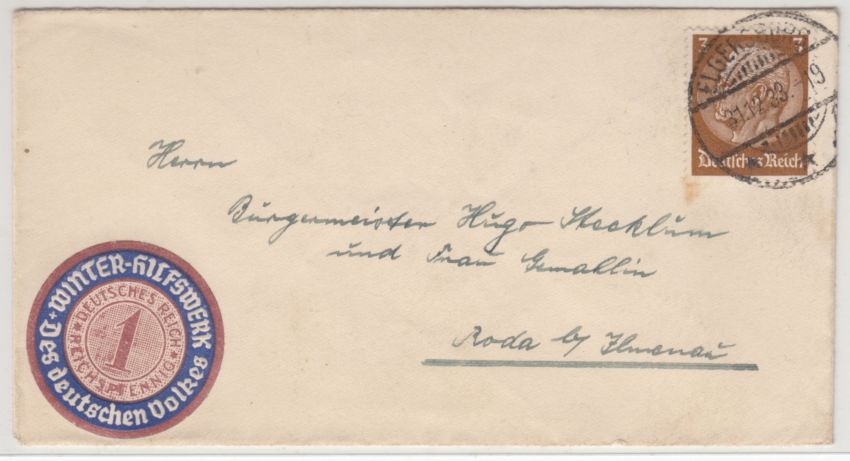 3 3
ELGERSBURG
31.12.33.-19
Deutsches Reich
Herrn
Bürgermeister Hugo Stecklum
und Frau Gemahlin
Roda by Ilmenau
WINTER-HILFSWERK
Des deutschen Volkes
DEUTSCHES REICH
1
REICHSPFENNIG